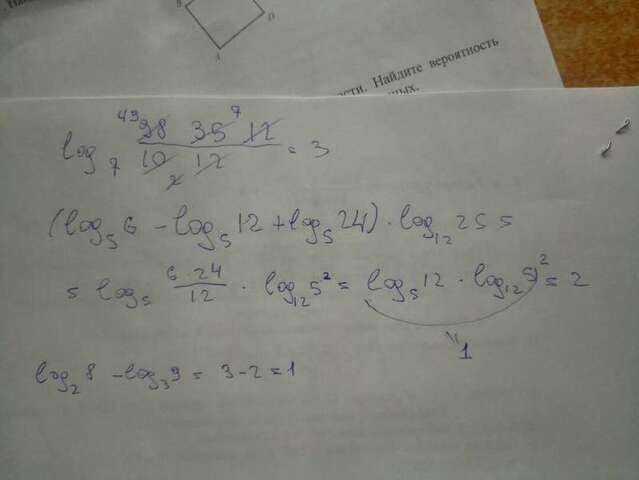 ости. Найдите вероятность
49 98 35 7 12
log₇ ——— = 3
10 12
2
(log₅6 - log₅12 + log₅24) · log₁₂25 =
= log₅ 6·24/12 · log₁₂5² = log₅12 · log₁₂5)² = 2
1
log₂8 - log₃9 = 3-2 = 1